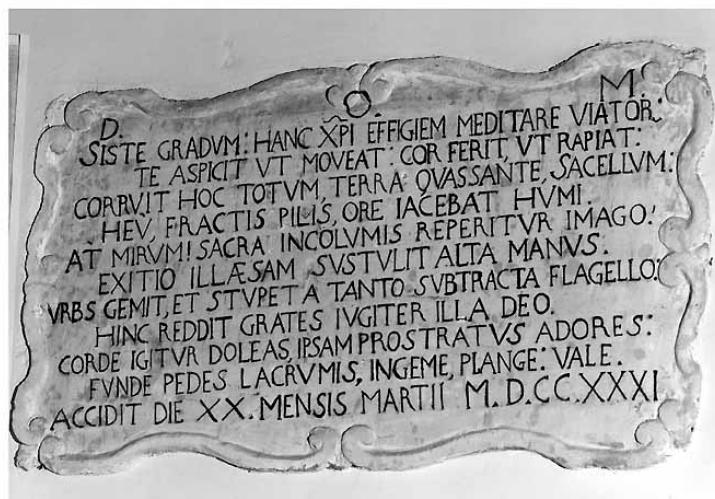 D. O. M.
SISTE GRADVM: HANC XPI EFFIGIEM MEDITARE VIATOR:
TE ASPICIT VT MOVEAT: COR FERIT, VT RAPIAT:
CORRVIT HOC TOTVM, TERRA QVASSANTE, SACELLVM:
HEV, FRACTIS PILIS, ORE IACEBAT HVMI.
AT MIRVM! SACRA INCOLVMIS REPERITVR IMAGO!
EXITIO ILLÆSAM SVSTVLIT ALTA MANVS.
VRBS GEMIT, ET STVPET A TANTO SVBTRACTA FLAGELLO:
HINC REDDIT GRATES IVGITER ILLA DEO.
CORDE IGITVR DOLEAS, IPSAM PROSTRATVS ADORES:
FVNDE PEDES LACRVMIS, INGEME, PLANGE: VALE.
ACCIDIT DIE XX. MENSIS MARTII M.D.CC.XXXI